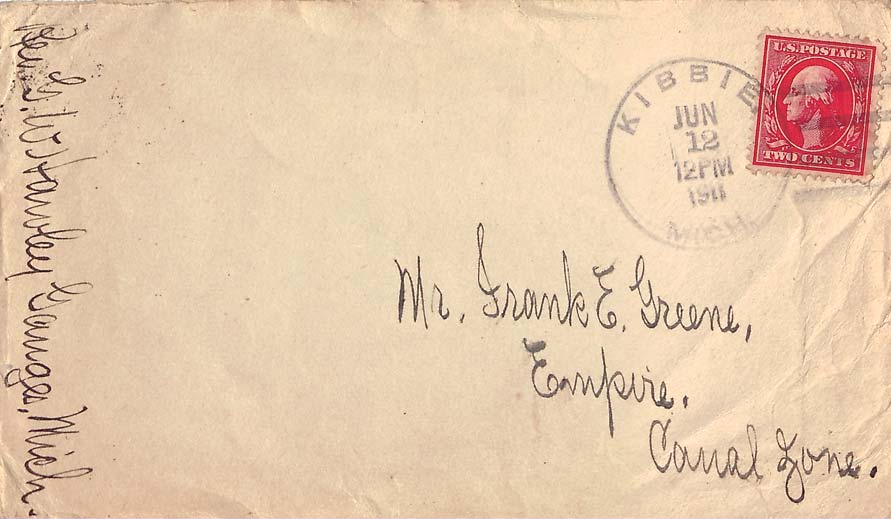 Rev. G. W. Hawley Ganges, Mich.
KIBBIE
JUN
12
12PM
1911
MICH.
U.S. POSTAGE
TWO CENTS
Mr. Frank E. Greene,
Empire.
Canal Zone.